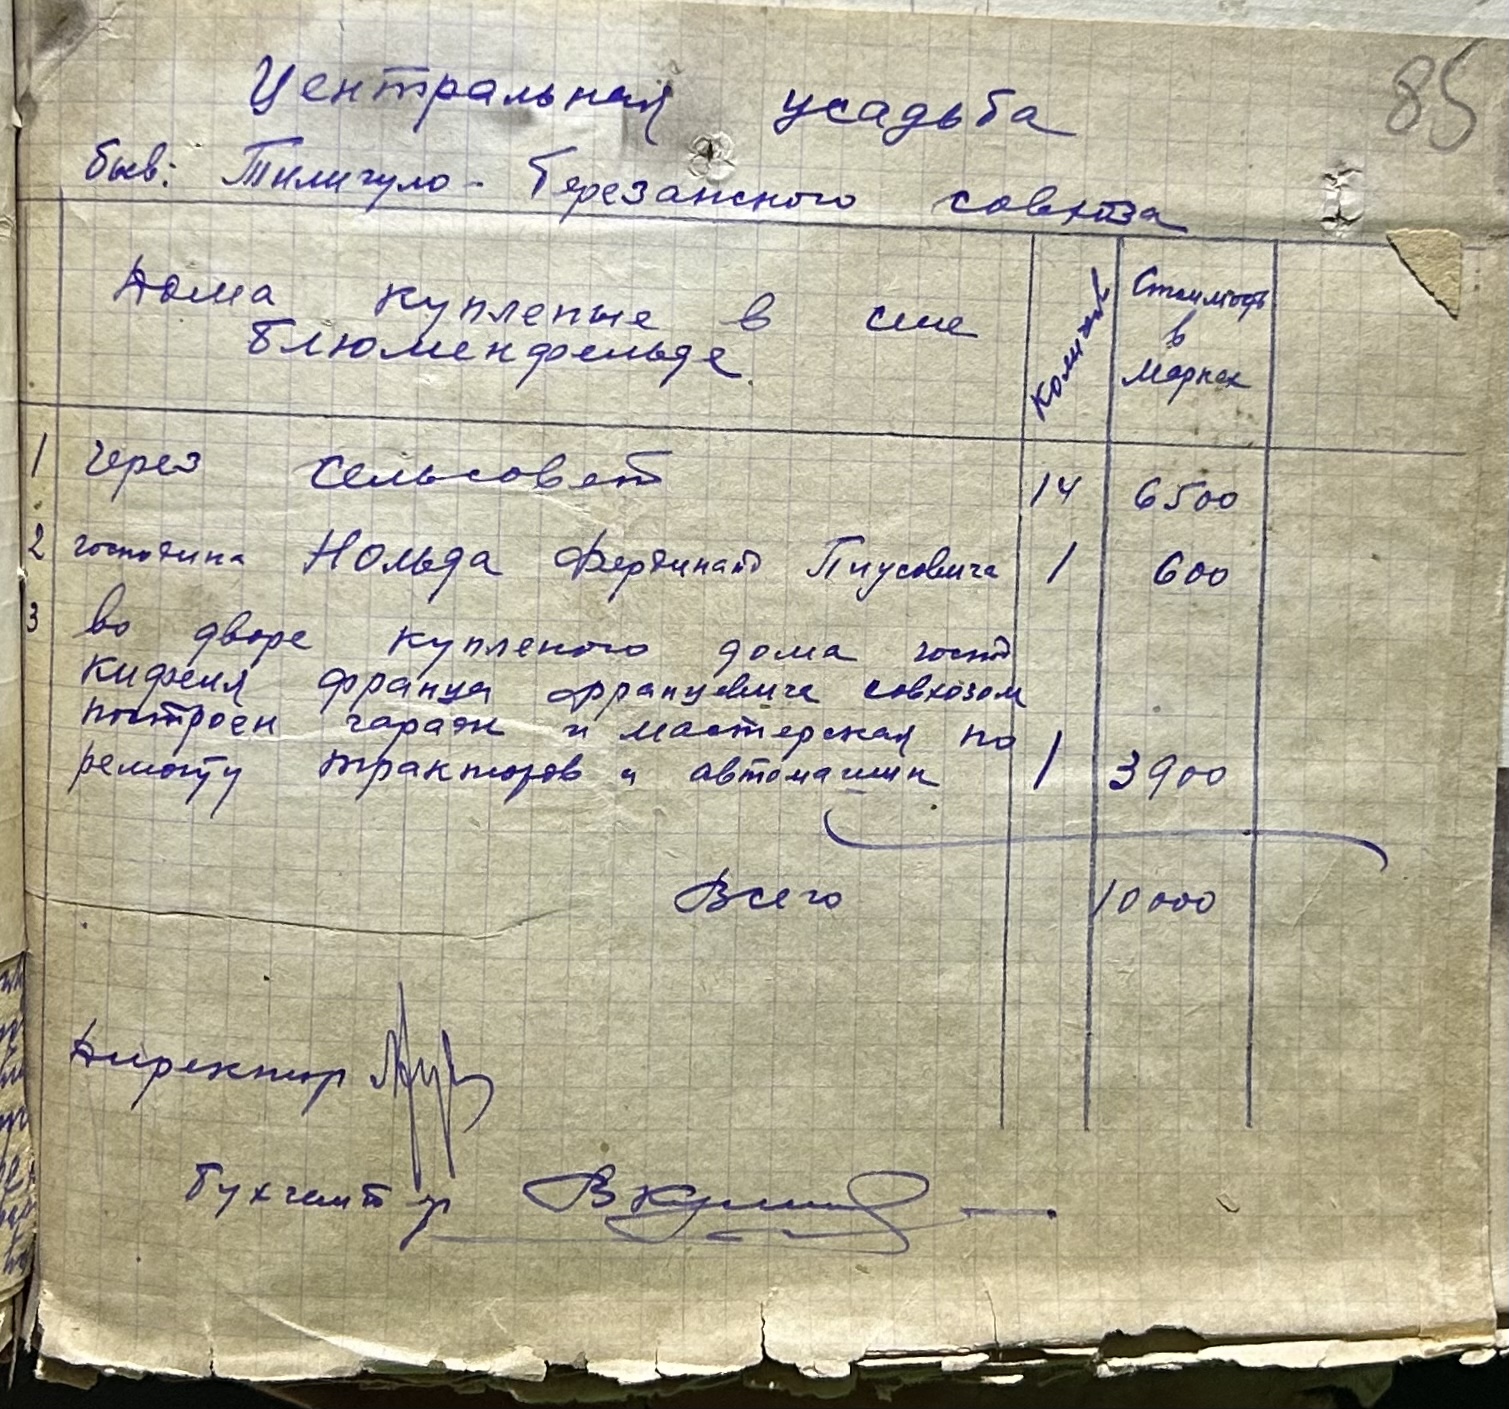 85
Центральная усадьба
бывв: Тилигуло-Березанского совхоза
Дома купленые в селе
Блюменфельде
Колич
Стоимость
в
Марках
1 через сельсовет 14 6500
2 господина Нольда Фердинанд Пиусовича 1 600
3 во дворе купленого дома госпд
Франца Францевича совхозом
построен гараж и мастерская по
ремонту тракторов и автомашин 1 3900
Всего 10000
Директор
Бухгалтер